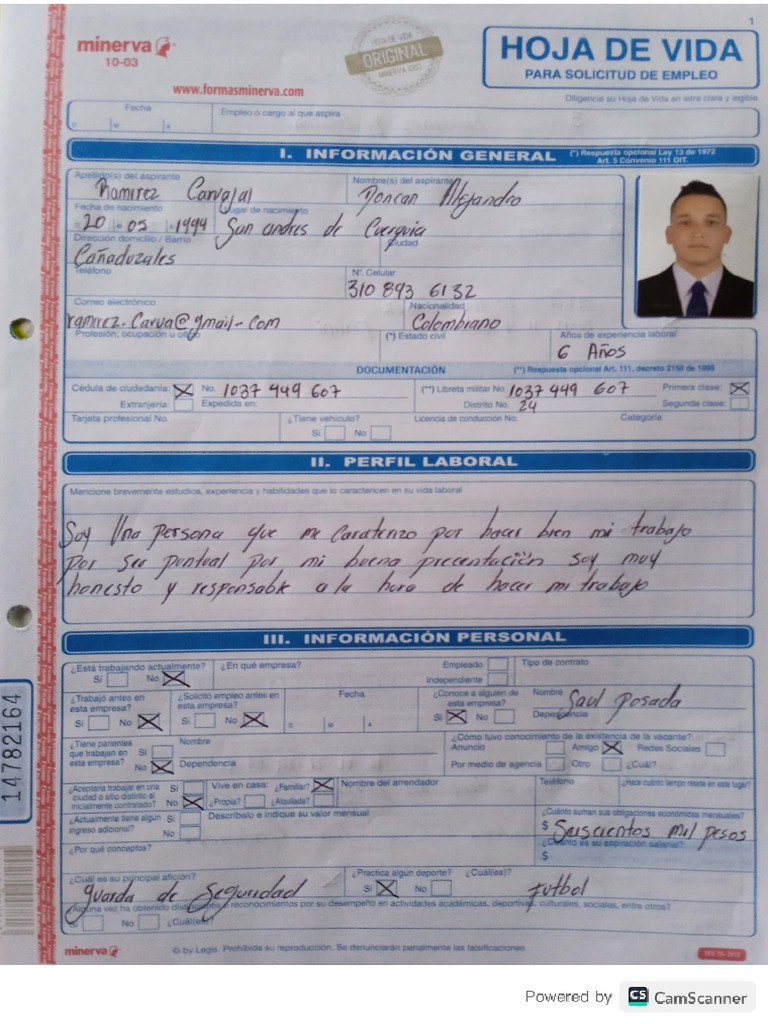 1
minerva
10-03
HOJA DE VIDA
ORIGINAL
MINERVA 1003
www.formasminerva.com
HOJA DE VIDA
PARA SOLICITUD DE EMPLEO
Diligencie su Hoja de Vida en letra clara y legible
Fecha
Empleo o cargo al que aspira
D M A
I. INFORMACIÓN GENERAL (*) Respuesta opcional Ley 13 de 1972
Art. 5 Convenio 111 OIT.
Apellido(s) del aspirante
Nombre(s) del aspirante
Ramirez Carvajal
Doncan Alejandro
Fecha de nacimiento
Lugar de nacimiento
20 M 05 A 1994 San andres de Cuerquia
Dirección domicilio / Barrio
Ciudad
Cañaduzales
Teléfono
N°. Celular
310 893 6132
Correo electrónico
Nacionalidad
ramirez.Carva@gmail-com
Colombiano
Profesión, ocupación u oficio
(*) Estado civil
Años de experiencia laboral
6 Años
DOCUMENTACIÓN (**) Respuesta opcional Art. 111, decreto 2150 de 1995
Cédula de ciudadanía: X No. 1037 449 607 (**) Libreta militar No. 1037 449 607 Primera clase: X
Extranjería: Expedida en: Distrito No. 24 Segunda clase:
Tarjeta profesional No. ¿Tiene vehículo? Licencia de conducción No. Categoría
Sí No
II. PERFIL LABORAL
Mencione brevemente estudios, experiencia y habilidades que lo caractericen en su vida laboral
Soy Una persona que me caraterizo por hacer bien mi trabajo
por ser puntual por mi buena precentación soy muy
honesto y responsable a la hora de hacer mi trabajo
III. INFORMACIÓN PERSONAL
¿Está trabajando actualmente? ¿En qué empresa? Empleado Tipo de contrato
Sí No X Independiente
¿Trabajó antes en esta empresa? ¿Solicitó empleo antes en esta empresa? Fecha ¿Conoce a alguien de esta empresa? Nombre Saul Posada
Sí No X Sí No X D M A Sí X No Dependencia
¿Tiene parientes que trabajan en esta empresa? Sí No X Nombre
Dependencia
¿Cómo tuvo conocimiento de la existencia de la vacante?
Anuncio Amigo X Redes Sociales
Por medio de agencia Otro ¿Cuál?
¿Aceptaría trabajar en una ciudad o sitio distinto al inicialmente contratado? Sí No X Vive en casa: ¿Familiar? X ¿Propia? ¿Alquilada? Nombre del arrendador Teléfono ¿Hace cuánto tiempo reside en este lugar?
¿Actualmente tiene algún ingreso adicional? Sí No Descríbalo e indique su valor mensual
¿Cuánto suman sus obligaciones económicas mensuales?
$ Seiscientos mil pesos
¿Por qué conceptos?
¿Cuánto es su aspiración salarial?
$
¿Cuál es su principal afición? ¿Practica algún deporte? ¿Cuál(es)?
guarda de Seguridad Sí X No Futbol
¿Alguna vez ha obtenido distinciones o reconocimientos por su desempeño en actividades académicas, deportivas, culturales, sociales, entre otros?
Sí No ¿Cuál(es)?
minerva © by Legis. Prohibida su reproducción. Se denunciarán penalmente las falsificaciones
14782164
Powered by CS CamScanner